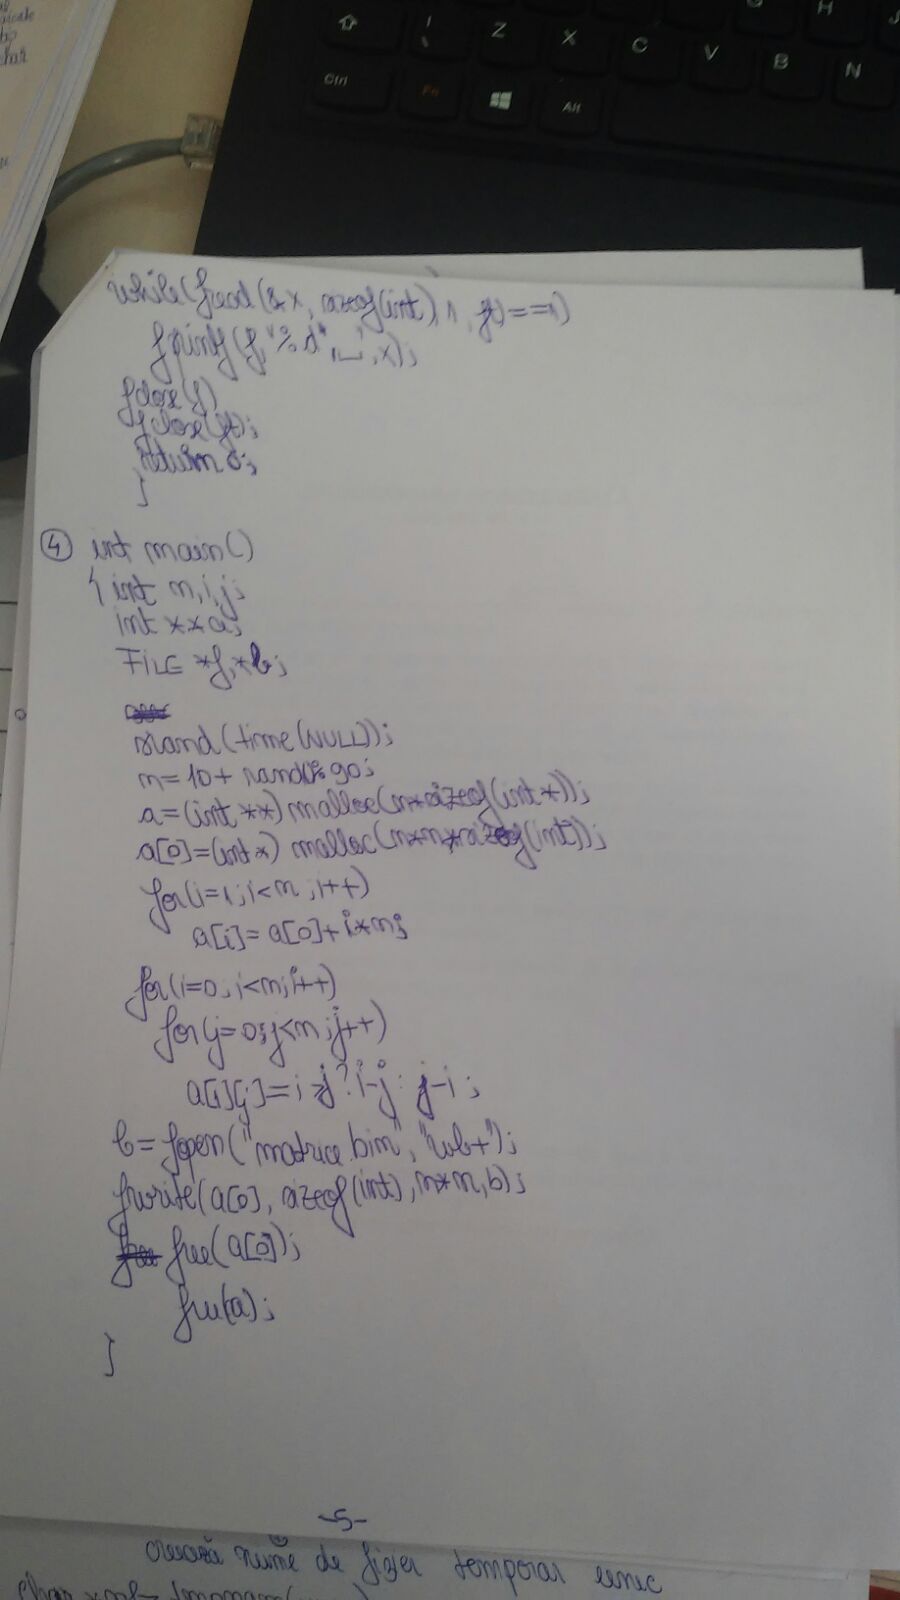 while(fread(&x, sizeof(int),1, ft)==1)
fprintf(f,"%d",x);
fclose(f)
fclose(ft);
return 0;
}
④ int main()
{ int n,i,j;
int **a;
FILE *f,*b;
srand(time(NULL));
n=10+ rand()%90;
a=(int **) malloc(n*sizeof(int*));
a[0]=(int*) malloc(n*n*sizeof(int));
for(i=1;i<n;i++)
a[i]=a[0]+i*n;
for(i=0;i<n;i++)
for(j=0;j<n;j++)
a[i][j]=i>j?i-j:j-i;
b=fopen("matrice.bin","wb+");
fwrite(a[0],sizeof(int),n*n,b);
free(a[0]);
free(a);
}
-5-
crează nume de fișier temporar unic